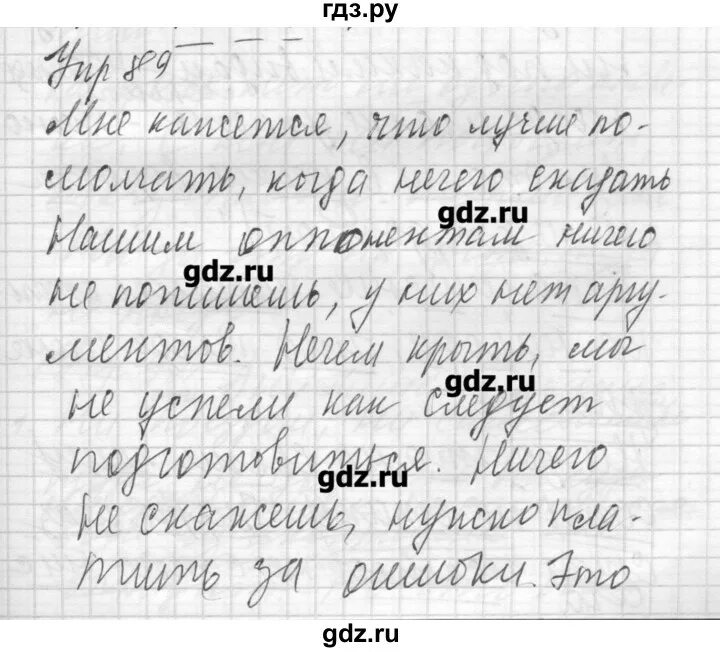 гдз.ру
Упр 89
Мне кажется, что лучше по-
молчать, когда нечего сказать
gdz.ru
Нашим оппонентам ничего
gdz.ru
не попишешь, у них нет аргу-
ментов. Нечем крыть, мы
gdz.ru
не успели как следует
подготовиться. Ничего
gdz.ru
не скажешь, нужно пла-
тить за ошибки. Это
gdz.ru